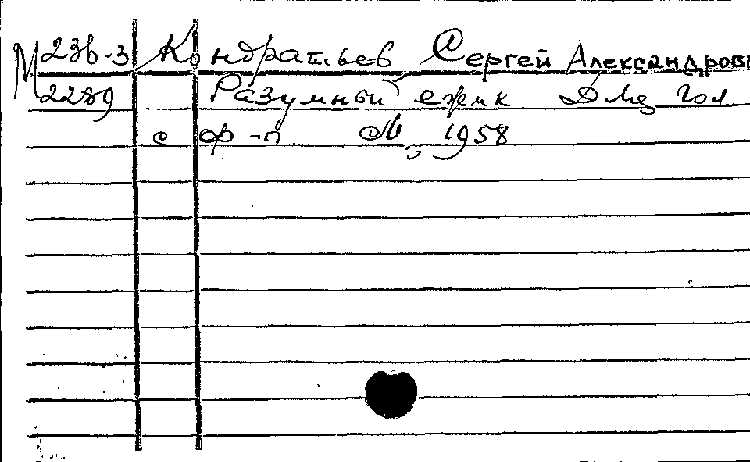 М 23в-3 Кондратьев Сергей Александров
2289 Разумный ежик Для гол
с ф-п М., 1958